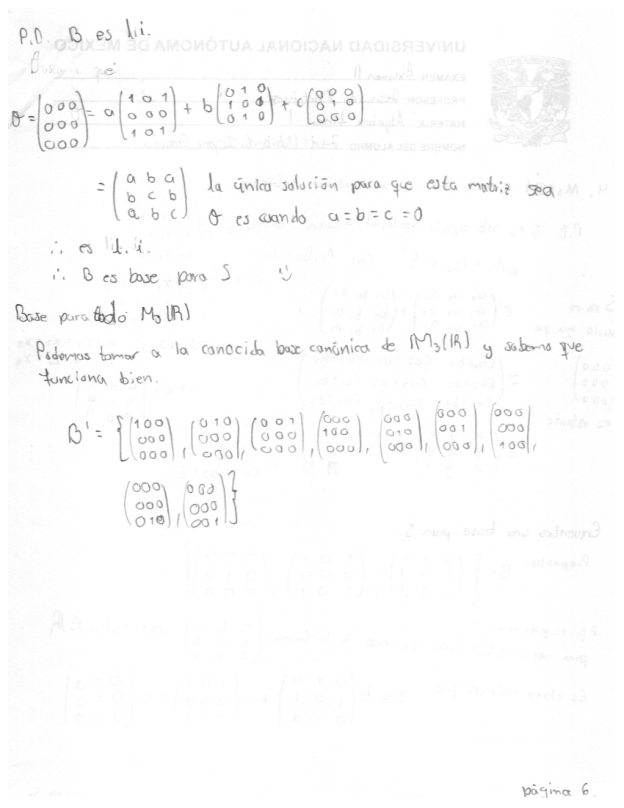 P.D. B es l.i.
θ = (0 0 0 / 0 0 0 / 0 0 0) = a (1 0 1 / 0 0 0 / 1 0 1) + b (0 1 0 / 1 0 1 / 0 1 0) + c (0 0 0 / 0 1 0 / 0 0 0)
= (a b a / b c b / a b c) la única solución para que esta matriz sea
θ es cuando a = b = c = 0
∴ es l.i.
∴ B es base para S
Base para todo M3(IR)
Podemos tomar a la conocida base canónica de IM3(IR) y sabemos que
funciona bien.
B' = {(1 0 0 / 0 0 0 / 0 0 0), (0 1 0 / 0 0 0 / 0 0 0), (0 0 1 / 0 0 0 / 0 0 0), (0 0 0 / 1 0 0 / 0 0 0), (0 0 0 / 0 1 0 / 0 0 0), (0 0 0 / 0 0 1 / 0 0 0), (0 0 0 / 0 0 0 / 1 0 0),
(0 0 0 / 0 0 0 / 0 1 0), (0 0 0 / 0 0 0 / 0 0 1)}
página 6.